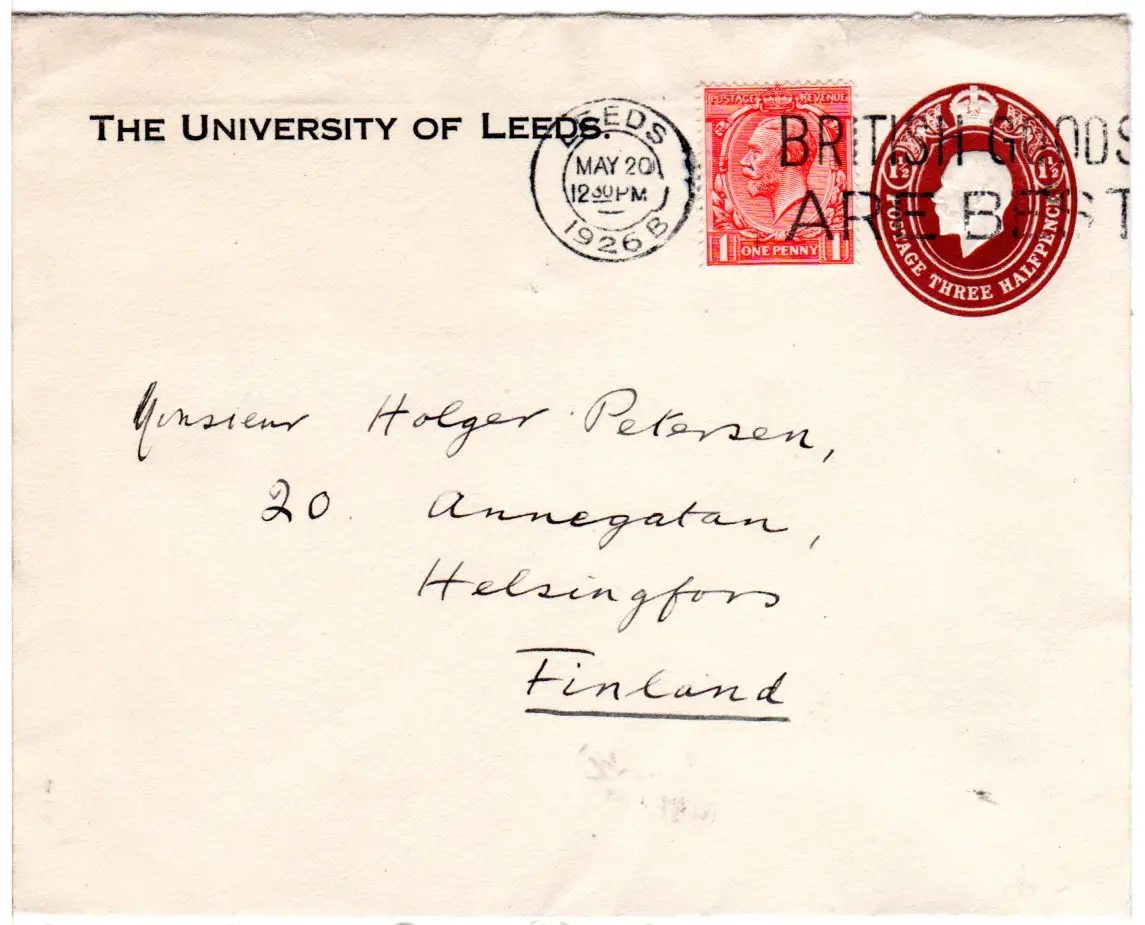 THE UNIVERSITY OF LEEDS.
LEEDS
MAY 20
12 30 PM
1926 B
POSTAGE REVENUE
1 ONE PENNY 1
BRITISH GOODS
ARE BEST
1½ 1½
POSTAGE THREE HALFPENCE
Monsieur Holger Petersen,
20. Annegatan,
Helsingfors
Finland